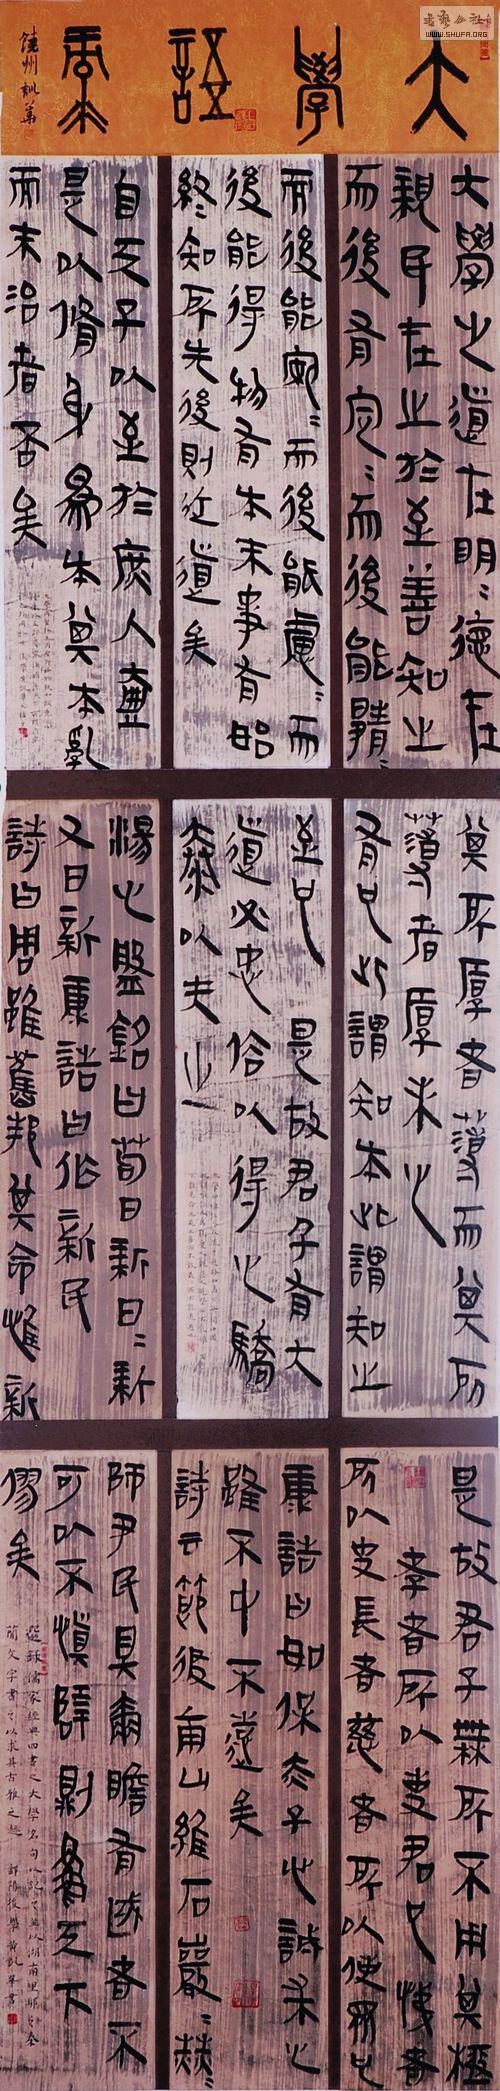 书艺公社
WWW.SHUFA.ORG
大學語彔
饒州
大學之道在明=德在
親民在止於至善知止
而後有定=而後能靜=
而後能安=而後能慮=而
後能得物有本末事有始
終知所先後則近道矣
自天子以至於庶人壹
是以脩身為本其本亂
而末治者否矣
其所厚者薄而其所
薄者厚未之
有也此謂知本此謂知之
至也 是故君子有大
道必忠信以得之驕
泰以失之
湯之盤銘曰苟日新日=新
又日新康誥曰作新民
詩曰周雖舊邦其命惟新
是故君子無所不用其極
孝者所以事君也悌者
所以事長者慈者所以使眾也
康誥曰如保赤子心誠求之
雖不中不遠矣
詩云節彼南山維石巖=赫=
師尹民具爾瞻有國者不
可以不慎辟則為天下
僇矣
選錄儒家經典四書之大學名句以記之並以湖南里耶之秦
簡文字書之以求其古雅之趣 鄱陽後學黃